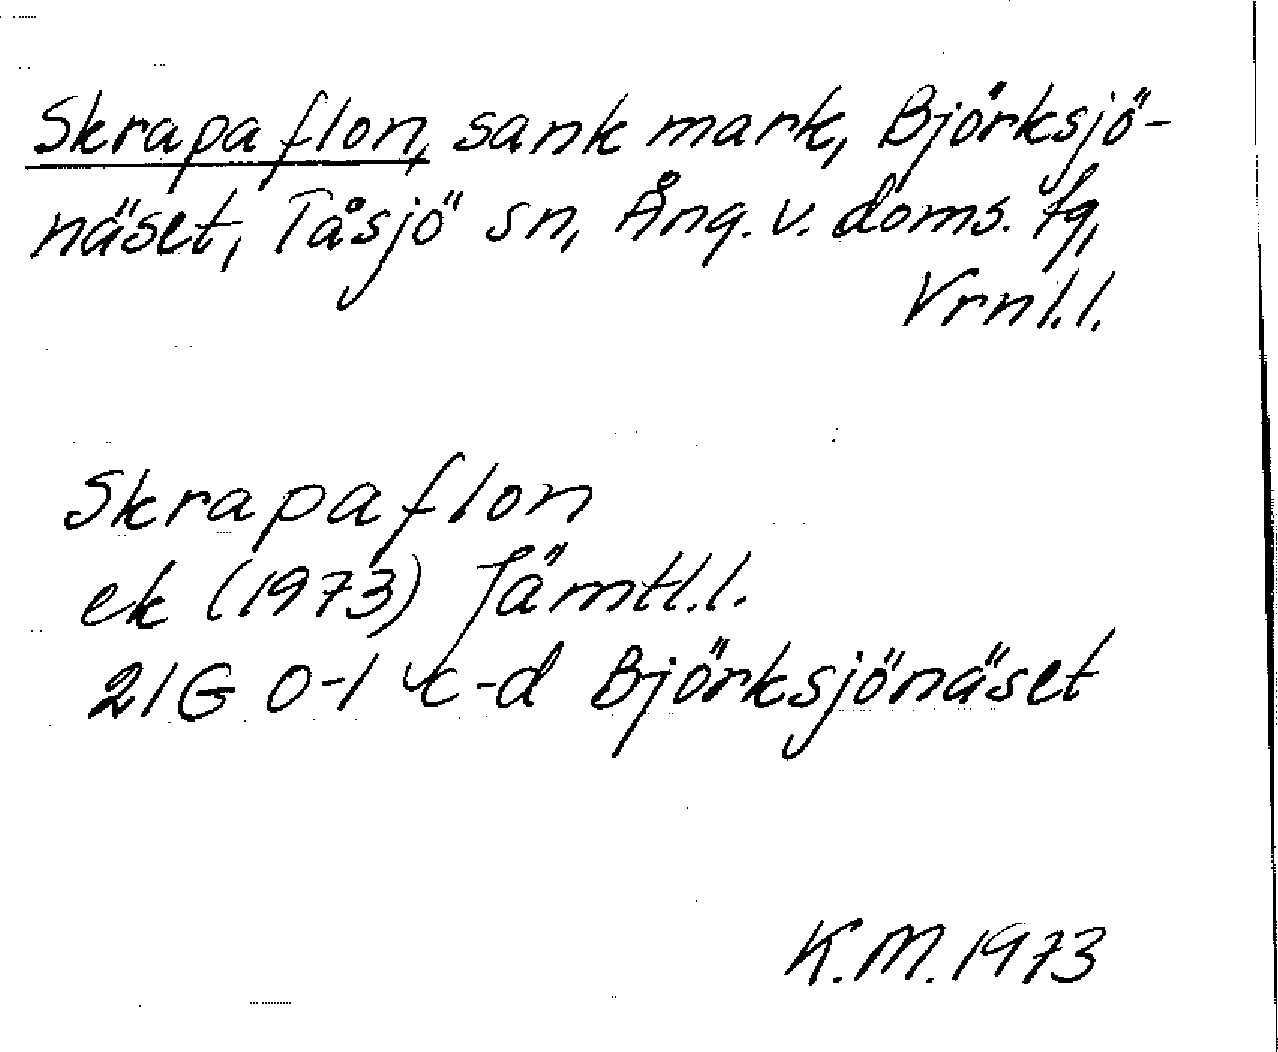 Skrapaflon, sank mark, Björksjö-
näset, Tåsjö sn, Ång. v. doms. fg,
Vrnl.l.
Skrapaflon
ek (1973) Jämtl.l.
21G 0-1 c-d Björksjönäset
K.M. 1973